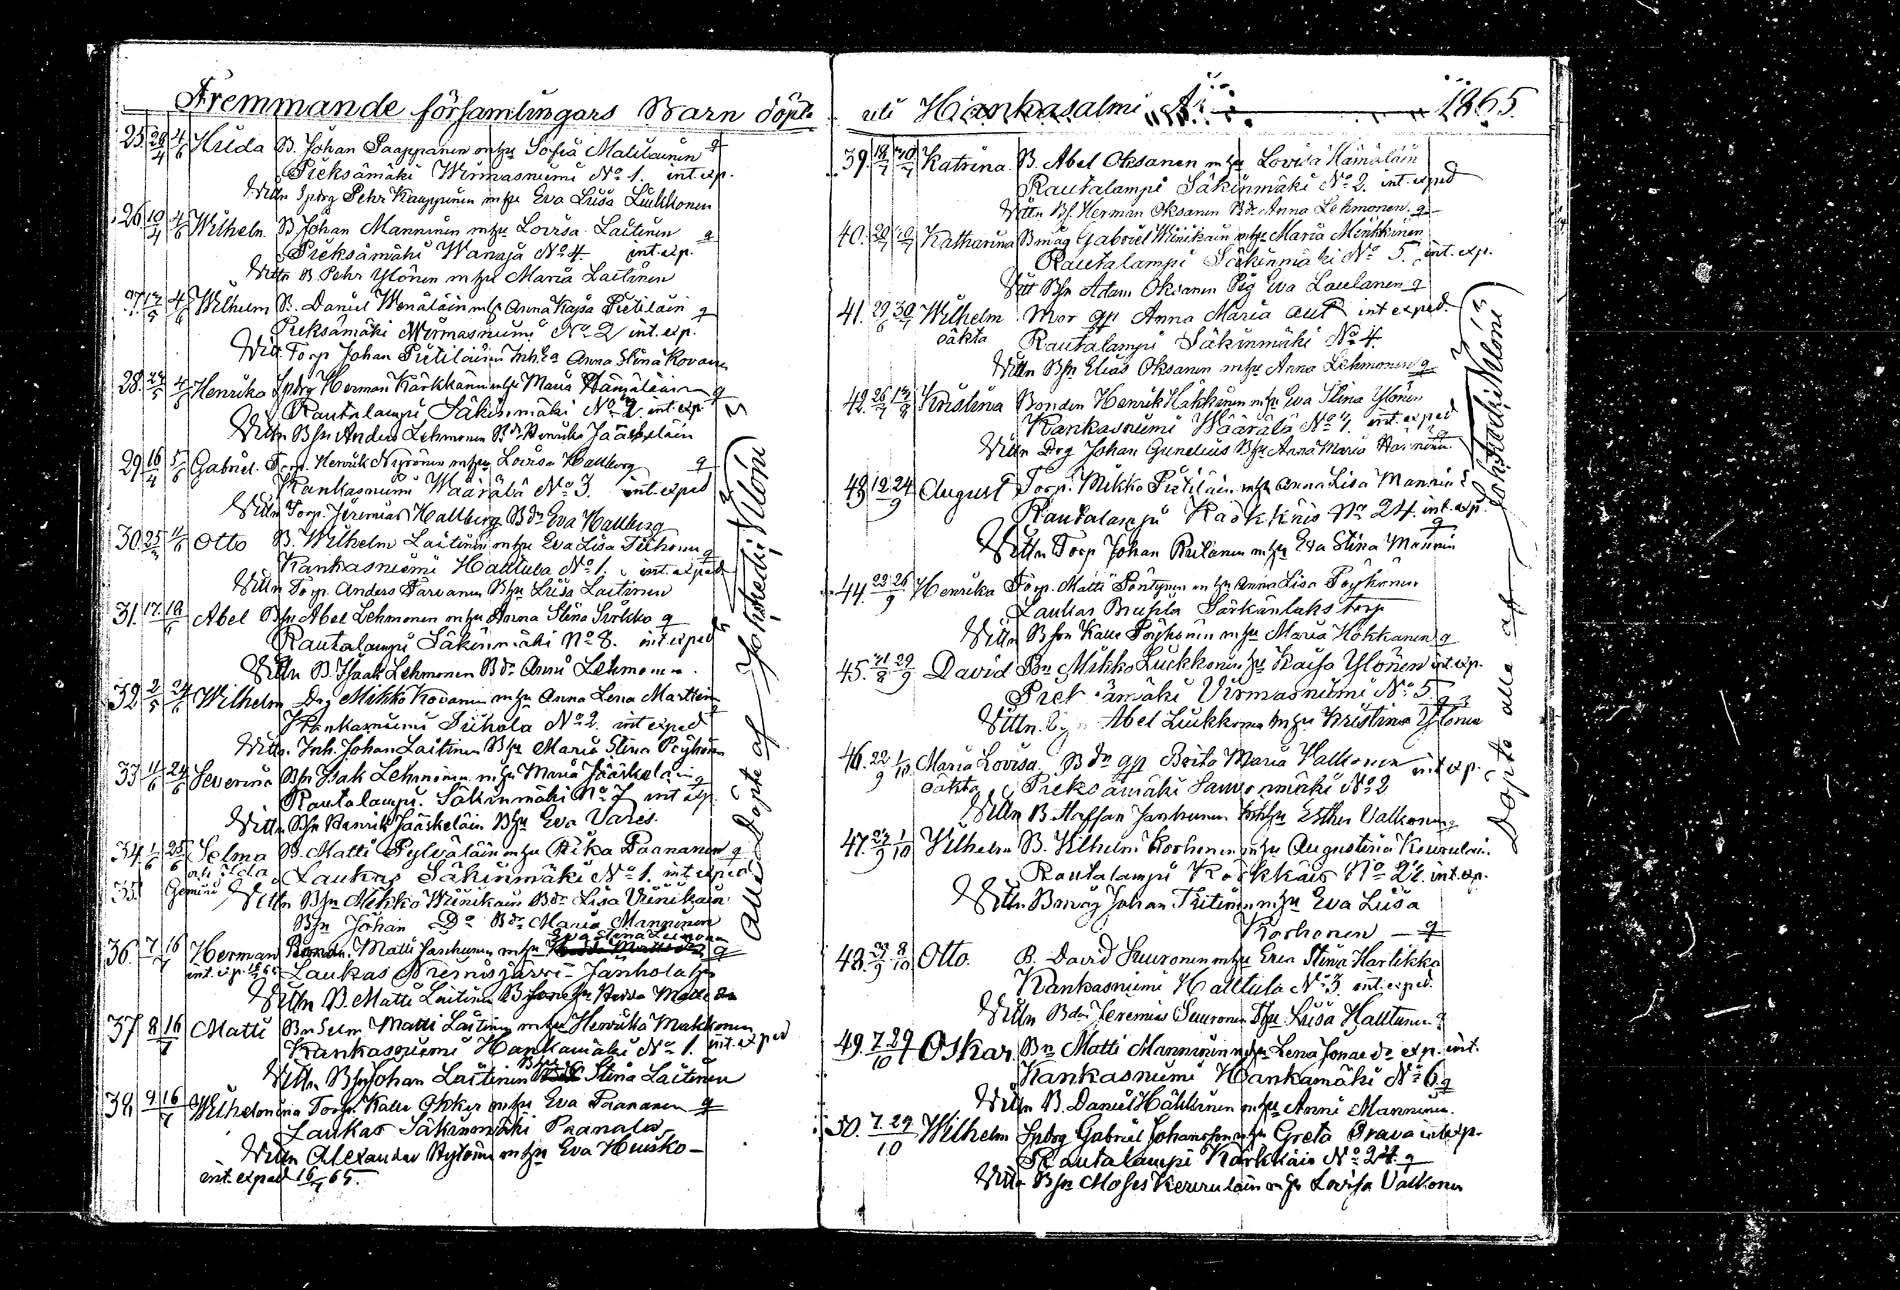 Fremmande församlingars Barn döpte
25. 29/4 4/6 Hilda B. Johan Paappanen m hu Sofia Matilainen q
Pieksämäki Wirmasniemi No 1. int. exp.
Vittn Spbrg Pehr Kauppinen m hu Eva Liisa Liukkonen
26. 10/4 4/6 Wilhelm B Johan Manninen m hu Lovisa Laitinen q
Pieksämäki Wanaja No 4. int. exp.
Vittn B Pehr Ylönen m hu Maria Laitinen
27. 13/5 4/6 Wilhelm B. Daniel Wenäläin m hu Anna Kajsa Pietiläin q
Pieksämäki Wirmasniemi No 2 int. exp.
Vittn Torp Johan Pietiläinen Inh. Anna Stina Kovanen
28. 27/5 4/6 Henrika Spbrg Herman Kärkkäinen m hu Maria Hämäläin q
Rautalampi Säkinmäki No 2. int. exp.
Vittn Bsn Anders Lehmonen Bdr Henrika Jääskeläin
29 16/4 5/6 Gabriel. Torp. Henrik Nyrönen m hu Lovisa Hallberg q
Kankasniemi Wäärälä No 3. int. exped
Vittn Torp. Jeremias Hallberg Bdr Eva Hallberg
30. 25/3 11/6 Otto B. Wilhelm Laitinen m hu Eva Lisa Tiihonen q
Kankasniemi Hallula No 1. int. exped
Vittn Torp. Anders Tarvanen Bhu Liisa Laitinen
31. 17 18/6 Abel Bsn Abel Lehmonen m hu Anna Stina Sirkka q
Rautalampi Säkinmäki No 8. int. exped
Vittn B Isaak Lehmonen Bdr Anni Lehmonen.
32 2/5 24/6 Wilhelm Drg Mikko Kovanen m hu Anna Lena Martikin q
Kankasniemi Piihola No 2. int exped
Vittn. Inh. Johan Laitinen Bhu Maria Stina Pöyhönen
33 11/6 24/6 Severina Bsn Isak Lehmonen m hu Maria Jääskeläin q
Rautalampi. Säkinmäki No 7 int exp.
Vittn Bsn Henrik Jääskeläin Bhu Eva Vares.
34. 1/6 25/6 Selma B. Matti Pylväläin m hu Fika Paananen q
och Ida Laukas Säkinmäki No 1. int. exped
35. Gemini Vittn Bsn Mikko Wiinikain Bdr Lisa Viinikain
Bsn Johan Do Bdr Maria Manninen
Eva Stina Leinonen
36. 7 16/7 Herman Bonden. Matti Janhunen m hu q
int. exp. 1865 Laukas Pienisjärvi Janholahti
Vittn B. Matti Laitinen
37 8 16/7 Matti Matti Laitinen m hu Henrika Makkonen
Kankasniemi Hankamäki No 1. int. exped
Vittn Bsn Johan Laitinen Bhu Stina Laitinen
38. 9 16/7 Wilhelmina Torp. Kalle Okker m hu Eva Paananen q
Laukas Säkinmäki Paanala
Vittn Alexander Hytönen m hu Eva Huisko
int. exped 16/7 65.
alla döpte af Joh. Fredr. Nylöni
uti Hankasalmi År 1865.
39. 18/7 30/7 Katrina. B. Abel Oksanen m hu Lovisa Hämäläin
Rautalampi Säkinmäki No 2. int. exped
Vittn Bs. Herman Oksanen Bdr Anna Lehmonen. q
40. 20/7 30/7 Katharina Bmåg Gabriel Wiinikain m hu Maria Minkkinen
Rautalampi Säkinmäki No 5. int. exp.
Vitt Bsn Adam Oksanen Pig Eva Laulanen q
41. 29/6 30/7 Wilhelm Mor gp Anna Maria Aut int exped.
oäkta Rautalampi Säkinmäki No 4.
Vittn Bsn Elias Oksanen m hu Anna Lehmonen q
42. 26/7 13/8 Kristina Bonden Henrik Häkkinen m hu Eva Stina Ylönen
Kankasniemi Wäärälä No 7. int. exped
Vittn Drg Johan Gunelius Bhu Anna Maria Häkkinen q
43 12 24/9 August Torp. Mikko Pietiläin m hu Anna Lisa Mannin
Rautalampi Kärkkäis No 24. int. exp.
Vittn Torp Johan m hu Eva Stina Mannin q
44. 23 26/9 Henrika Torp. Matti Pöntynen m hu Anna Lisa Pöyhönen
Laukas Särkänlaks torp
Vittn Bsn Kalle Pöyhönen m hu Maria Hokkanen q
45. 31/8 29/9 David Bn Mikko Liukkonen m hu Kaisa Ylönen int. exp.
Pieksämäki Virmasniemi No 5. q
Vittn. Abel Liukkonen m hu Kristina Ylönen
46. 22/9 1/10 Maria Lovisa. Bdr gp Brita Maria Valkonen int exp.
oäkta Pieksämäki No 2
Vittn B. Staffan Janhunen m hu Esther Valkonen q
47. 23/9 1/10 Wilhelm B. Wilhelm Korhonen m hu Augustina Keurulain.
Rautalampi Kärkkäis No 24. int. exp.
Vittn Bmåg Johan Tiitinen m hu Eva Liisa
Korhonen — q
48. 30/9 8/10 Otto. B. David Suuronen m hu Eva Stina Hartikka
Kankasniemi Halttula No 3. int. exped.
Vittn Bdr Jeremias Suuronen Thu Liisa Halttunen q
49. 7 29/10 Oskar Bn Matti Manninen m hu Lena Jonae dr exp. int.
Kankasniemi Hankamäki No 6. q
Vittn B. Daniel Häkkinen m hu Anni Manninen.
50. 7. 29/10 Wilhelm Spbrg Gabriel Johansson m hu Greta Orava int exp.
Rautalampi Kärkkäis No 24. q
Vittn Bsn Moses Keurulain m hu Lovisa Valkonen
Döpte alla af Joh. Fredr. Nylöni